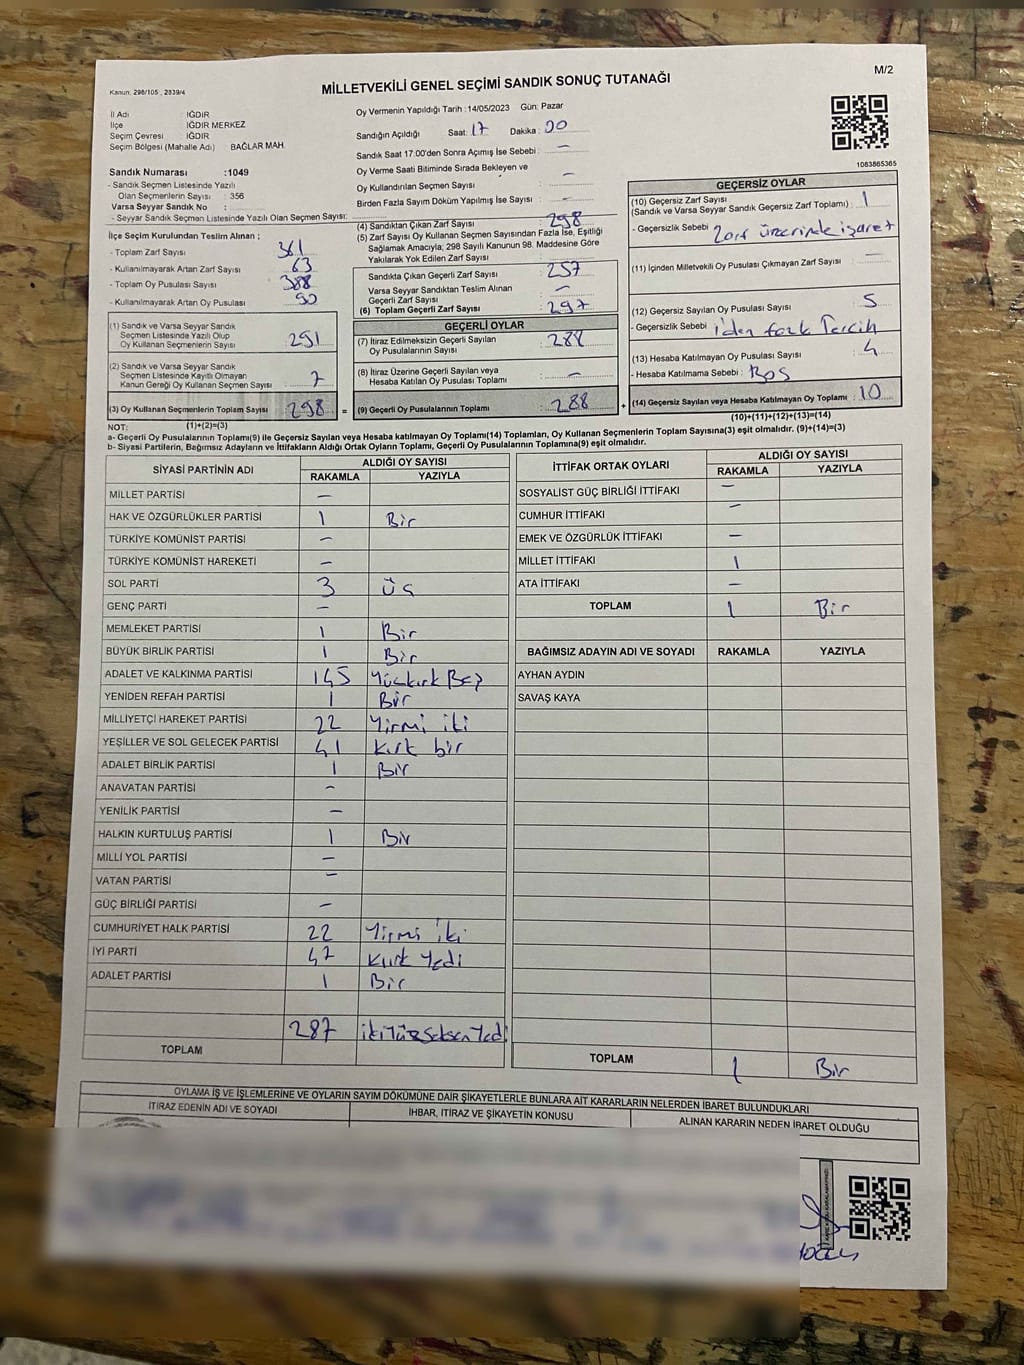 M/2
MİLLETVEKİLİ GENEL SEÇİMİ SANDIK SONUÇ TUTANAĞI
Kanun: 298/105 , 2839/4
İl Adı IĞDIR
İlçe IĞDIR MERKEZ
Seçim Çevresi IĞDIR
Seçim Bölgesi (Mahalle Adı) BAĞLAR MAH.
Sandık Numarası :1049
- Sandık Seçmen Listesinde Yazılı
Olan Seçmenlerin Sayısı : 356
Varsa Seyyar Sandık No :
- Seyyar Sandık Seçmen Listesinde Yazılı Olan Seçmen Sayısı:
Oy Vermenin Yapıldığı Tarih :14/05/2023 Gün: Pazar
Sandığın Açıldığı Saat: 17 Dakika :
Sandık Saat 17:00'den Sonra Açılmış İse Sebebi : —
Oy Verme Saati Bitiminde Sırada Bekleyen ve
Oy Kullandırılan Seçmen Sayısı : —
Birden Fazla Sayım Döküm Yapılmış İse Sayısı : —
1083865365
İlçe Seçim Kurulundan Teslim Alınan ;
- Toplam Zarf Sayısı 361
- Kullanılmayarak Artan Zarf Sayısı 63
- Toplam Oy Pusulası Sayısı 388
- Kullanılmayarak Artan Oy Pusulası 90
(1) Sandık ve Varsa Seyyar Sandık
Seçmen Listesinde Yazılı Olup
Oy Kullanan Seçmenlerin Sayısı : 291
(2) Sandık ve Varsa Seyyar Sandık
Seçmen Listesinde Kayıtlı Olmayan
Kanun Gereği Oy Kullanan Seçmen Sayısı : 7
(3) Oy Kullanan Seçmenlerin Toplam Sayısı : 298
(1)+(2)=(3)
(4) Sandıktan Çıkan Zarf Sayısı : 298
(5) Zarf Sayısı Oy Kullanan Seçmen Sayısından Fazla İse, Eşitliği
Sağlamak Amacıyla; 298 Sayılı Kanunun 98. Maddesine Göre
Yakılarak Yok Edilen Zarf Sayısı :
Sandıkta Çıkan Geçerli Zarf Sayısı : 297
Varsa Seyyar Sandıktan Teslim Alınan
Geçerli Zarf Sayısı : —
(6) Toplam Geçerli Zarf Sayısı : 297
GEÇERLİ OYLAR
(7) İtiraz Edilmeksizin Geçerli Sayılan
Oy Pusulalarının Sayısı : 288
(8) İtiraz Üzerine Geçerli Sayılan veya
Hesaba Katılan Oy Pusulası Toplamı : —
= (9) Geçerli Oy Pusulalarının Toplamı : 288
GEÇERSİZ OYLAR
(10) Geçersiz Zarf Sayısı
(Sandık ve Varsa Seyyar Sandık Geçersiz Zarf Toplamı) : 1
- Geçersizlik Sebebi : Zarf üzerinde işaret
(11) İçinden Milletvekili Oy Pusulası Çıkmayan Zarf Sayısı : —
(12) Geçersiz Sayılan Oy Pusulası Sayısı : 5
- Geçersizlik Sebebi : 1'den fazla Tercih
(13) Hesaba Katılmayan Oy Pusulası Sayısı : 4
- Hesaba Katılmama Sebebi : Boş
+ (14) Geçersiz Sayılan veya Hesaba Katılmayan Oy Toplamı : 10
(10)+(11)+(12)+(13)=(14)
NOT:
a- Geçerli Oy Pusulalarının Toplamı(9) ile Geçersiz Sayılan veya Hesaba katılmayan Oy Toplamı(14) Toplamları, Oy Kullanan Seçmenlerin Toplam Sayısına(3) eşit olmalıdır. (9)+(14)=(3)
b- Siyasi Partilerin, Bağımsız Adayların ve İttifakların Aldığı Ortak Oyların Toplamı, Geçerli Oy Pusulalarının Toplamına(9) eşit olmalıdır.
SİYASİ PARTİNİN ADI ALDIĞI OY SAYISI
RAKAMLA YAZIYLA
MİLLET PARTİSİ —
HAK VE ÖZGÜRLÜKLER PARTİSİ 1 Bir
TÜRKİYE KOMÜNİST PARTİSİ —
TÜRKİYE KOMÜNİST HAREKETİ —
SOL PARTİ 3 Üç
GENÇ PARTİ —
MEMLEKET PARTİSİ 1 Bir
BÜYÜK BİRLİK PARTİSİ 1 Bir
ADALET VE KALKINMA PARTİSİ 145 Yüzkırk Beş
YENİDEN REFAH PARTİSİ 1 Bir
MİLLİYETÇİ HAREKET PARTİSİ 22 Yirmi iki
YEŞİLLER VE SOL GELECEK PARTİSİ 41 Kırk bir
ADALET BİRLİK PARTİSİ 1 Bir
ANAVATAN PARTİSİ —
YENİLİK PARTİSİ —
HALKIN KURTULUŞ PARTİSİ 1 Bir
MİLLİ YOL PARTİSİ —
VATAN PARTİSİ —
GÜÇ BİRLİĞİ PARTİSİ —
CUMHURİYET HALK PARTİSİ 22 Yirmi iki
İYİ PARTİ 47 Kırk Yedi
ADALET PARTİSİ 1 Bir
287 ikiYüzSeksenYedi
TOPLAM
İTTİFAK ORTAK OYLARI ALDIĞI OY SAYISI
RAKAMLA YAZIYLA
SOSYALİST GÜÇ BİRLİĞİ İTTİFAKI —
CUMHUR İTTİFAKI —
EMEK VE ÖZGÜRLÜK İTTİFAKI —
MİLLET İTTİFAKI 1
ATA İTTİFAKI —
TOPLAM 1 Bir
BAĞIMSIZ ADAYIN ADI VE SOYADI RAKAMLA YAZIYLA
AYHAN AYDIN
SAVAŞ KAYA
TOPLAM 1 Bir
OYLAMA İŞ VE İŞLEMLERİNE VE OYLARIN SAYIM DÖKÜMÜNE DAİR ŞİKAYETLERLE BUNLARA AİT KARARLARIN NELERDEN İBARET BULUNDUKLARI
İTİRAZ EDENİN ADI VE SOYADI İHBAR, İTİRAZ VE ŞİKAYETİN KONUSU ALINAN KARARIN NEDEN İBARET OLDUĞU